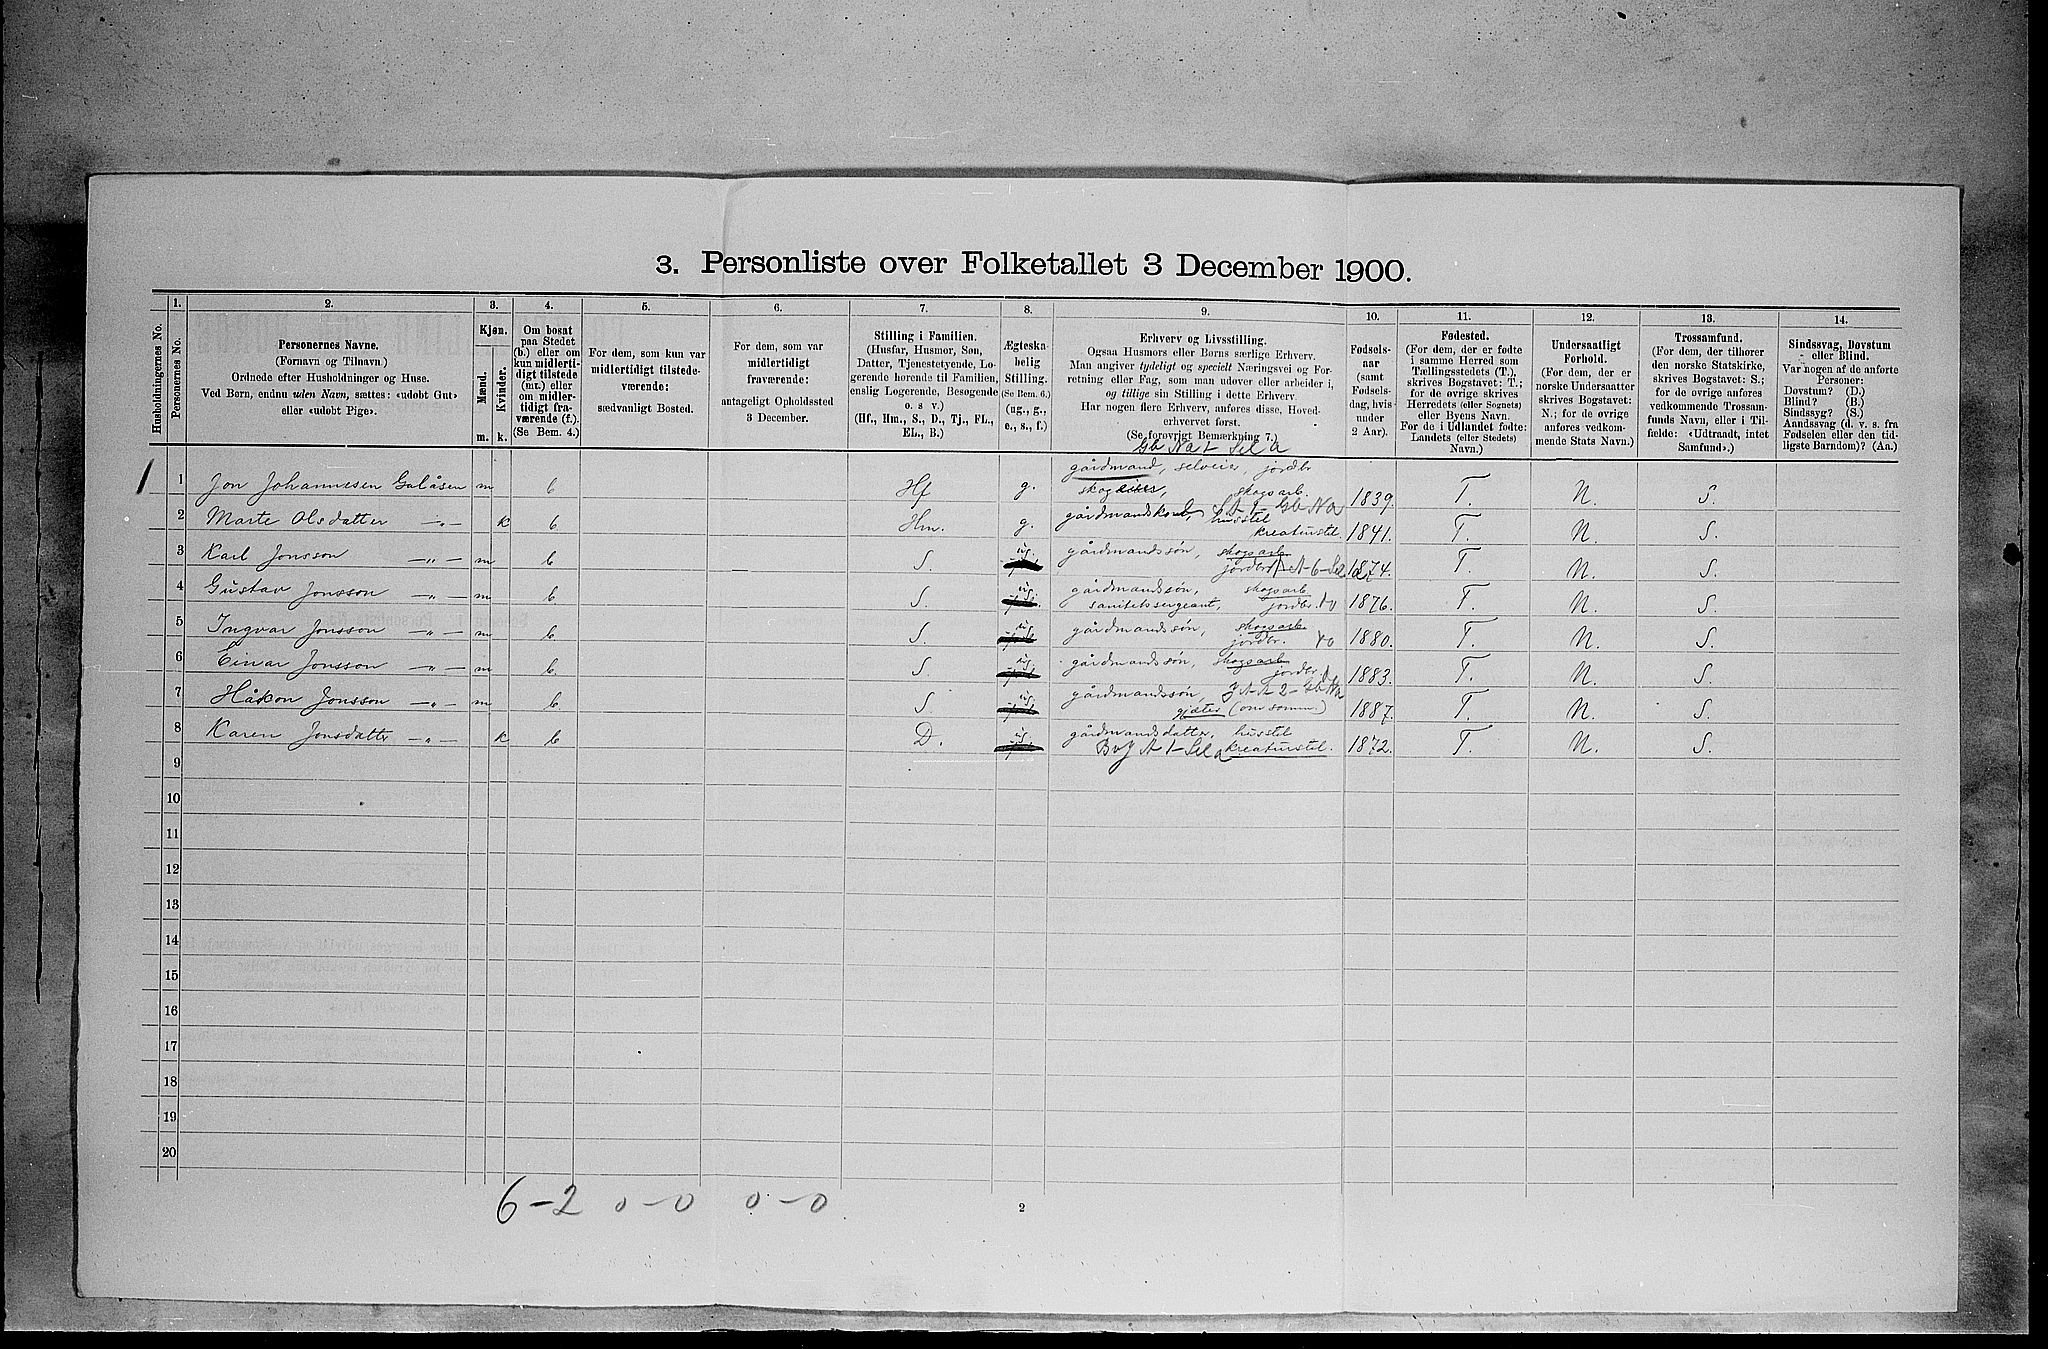 3. Personliste over Folketallet 3 December 1900.
1. 2. 3. 4. 5. 6. 7. 8. 9. 10. 11. 12. 13. 14.
Husholdningernes No.
Personernes No.
Personernes Navne.
(Fornavn og Tilnavn)
Ordnede efter Husholdninger og Huse.
Ved Børn, endnu uden Navn, sættes: «udøbt Gut»
eller «udøbt Pige».
Kjøn.
Mænd.
Kvinder.
m. k.
Om bosat
paa Stedet
(b.) eller om
kun midlerti-
digt tilstede
(mt.) eller
om midler-
tidigt fra-
værende (f.).
(Se Bem. 4.)
For dem, som kun var
midlertidigt tilstede-
værende:
sædvanligt Bosted.
For dem, som var
midlertidigt
fraværende:
antageligt Opholdssted
3 December.
Stilling i Familien.
(Husfar, Husmor, Søn,
Datter, Tjenestetyende, Lo-
gerende hørende til Familien,
enslig Logerende, Besøgende
o. s v.)
(Hf., Hm., S., D., Tj., FL.,
EL., B.)
Ægteska-
belig
Stilling.
(Se Bem. 6.)
(ug., g.,
e., s., f.)
Erhverv og Livsstilling.
Ogsaa Husmors eller Børns særlige Erhverv.
Man angiver tydeligt og specielt Næringsvei og For-
retning eller Fag, som man udøver eller arbeider i,
og tillige sin Stilling i dette Erhverv.
Har nogen flere Erhverv, anføres disse, Hoved-
erhvervet først.
(Se forøvrigt Bemærkning 7.)
Fødsels-
aar
(samt
Fødsels-
dag, hvis
under
2 Aar).
Fødested.
(For dem, der er fødte
i samme Herred som
Tællingsstedets (T.),
skrives Bogstavet: T.;
for de øvrige skrives
Herredets (eller Sognets)
eller Byens Navn.
For de i Udlandet fødte:
Landets (eller Stedets)
Navn.)
Undersaatligt
Forhold.
(For dem, der er
norske Undersaatter
skrives Bogstavet:
N.; for de øvrige
anføres vedkom-
mende Stats Navn.)
Trossamfund.
(For dem, der tilhører
den norske Statskirke,
skrives Bogstavet: S.;
for de øvrige anføres
vedkommende Trossam-
funds Navn, eller i Til-
fælde: «Udtraadt, intet
Samfund».)
Sindssvag, Døvstum
eller Blind.
Var nogen af de anførte
Personer:
Døvstum? (D.)
Blind? (B.)
Sindssyg? (S.)
Aandssvag (d. v. s. fra
Fødselen eller den tid-
ligste Barndom)? (Aa.)
gårdmand, selveier, jordbr
1 1 Jon Johannesen Galåsen m b Hf g. skog skogsarb. 1839. T. N. S.
2 Marte Olsdatter —„— k b Hm. g. gårdmandskone, husstel kreaturstel. 1841. T. N. S.
3 Karl Jonsson —„— m b S. ug. gårdmandssøn, skogsarb jordbr 1874. T. N. S.
4 Gustav Jonsson —„— m b S. ug. gårdmandssøn, skogsarb
sanitetssergeant, jordbr. 1876. T. N. S.
5 Ingvar Jonsson —„— m b S. ug. gårdmandssøn, skogsarb. jordbr. 1880. T. N. S.
6 Einar Jonsson —„— m b S. ug. gårdmandssøn, skogsarb jordbr. 1883. T. N. S.
7 Håkon Jonsson —„— m b S. ug. gårdmandssøn,
gjæter (om somm.) 1887. T. N. S.
8 Karen Jonsdatter —„— k b D. ug. gårdmandsdatter, husstel
kreaturstel. 1872. T. N. S.
9
10
11
12
13
14
15
16
17
18
19
20
6-2 0-0 0-0
2